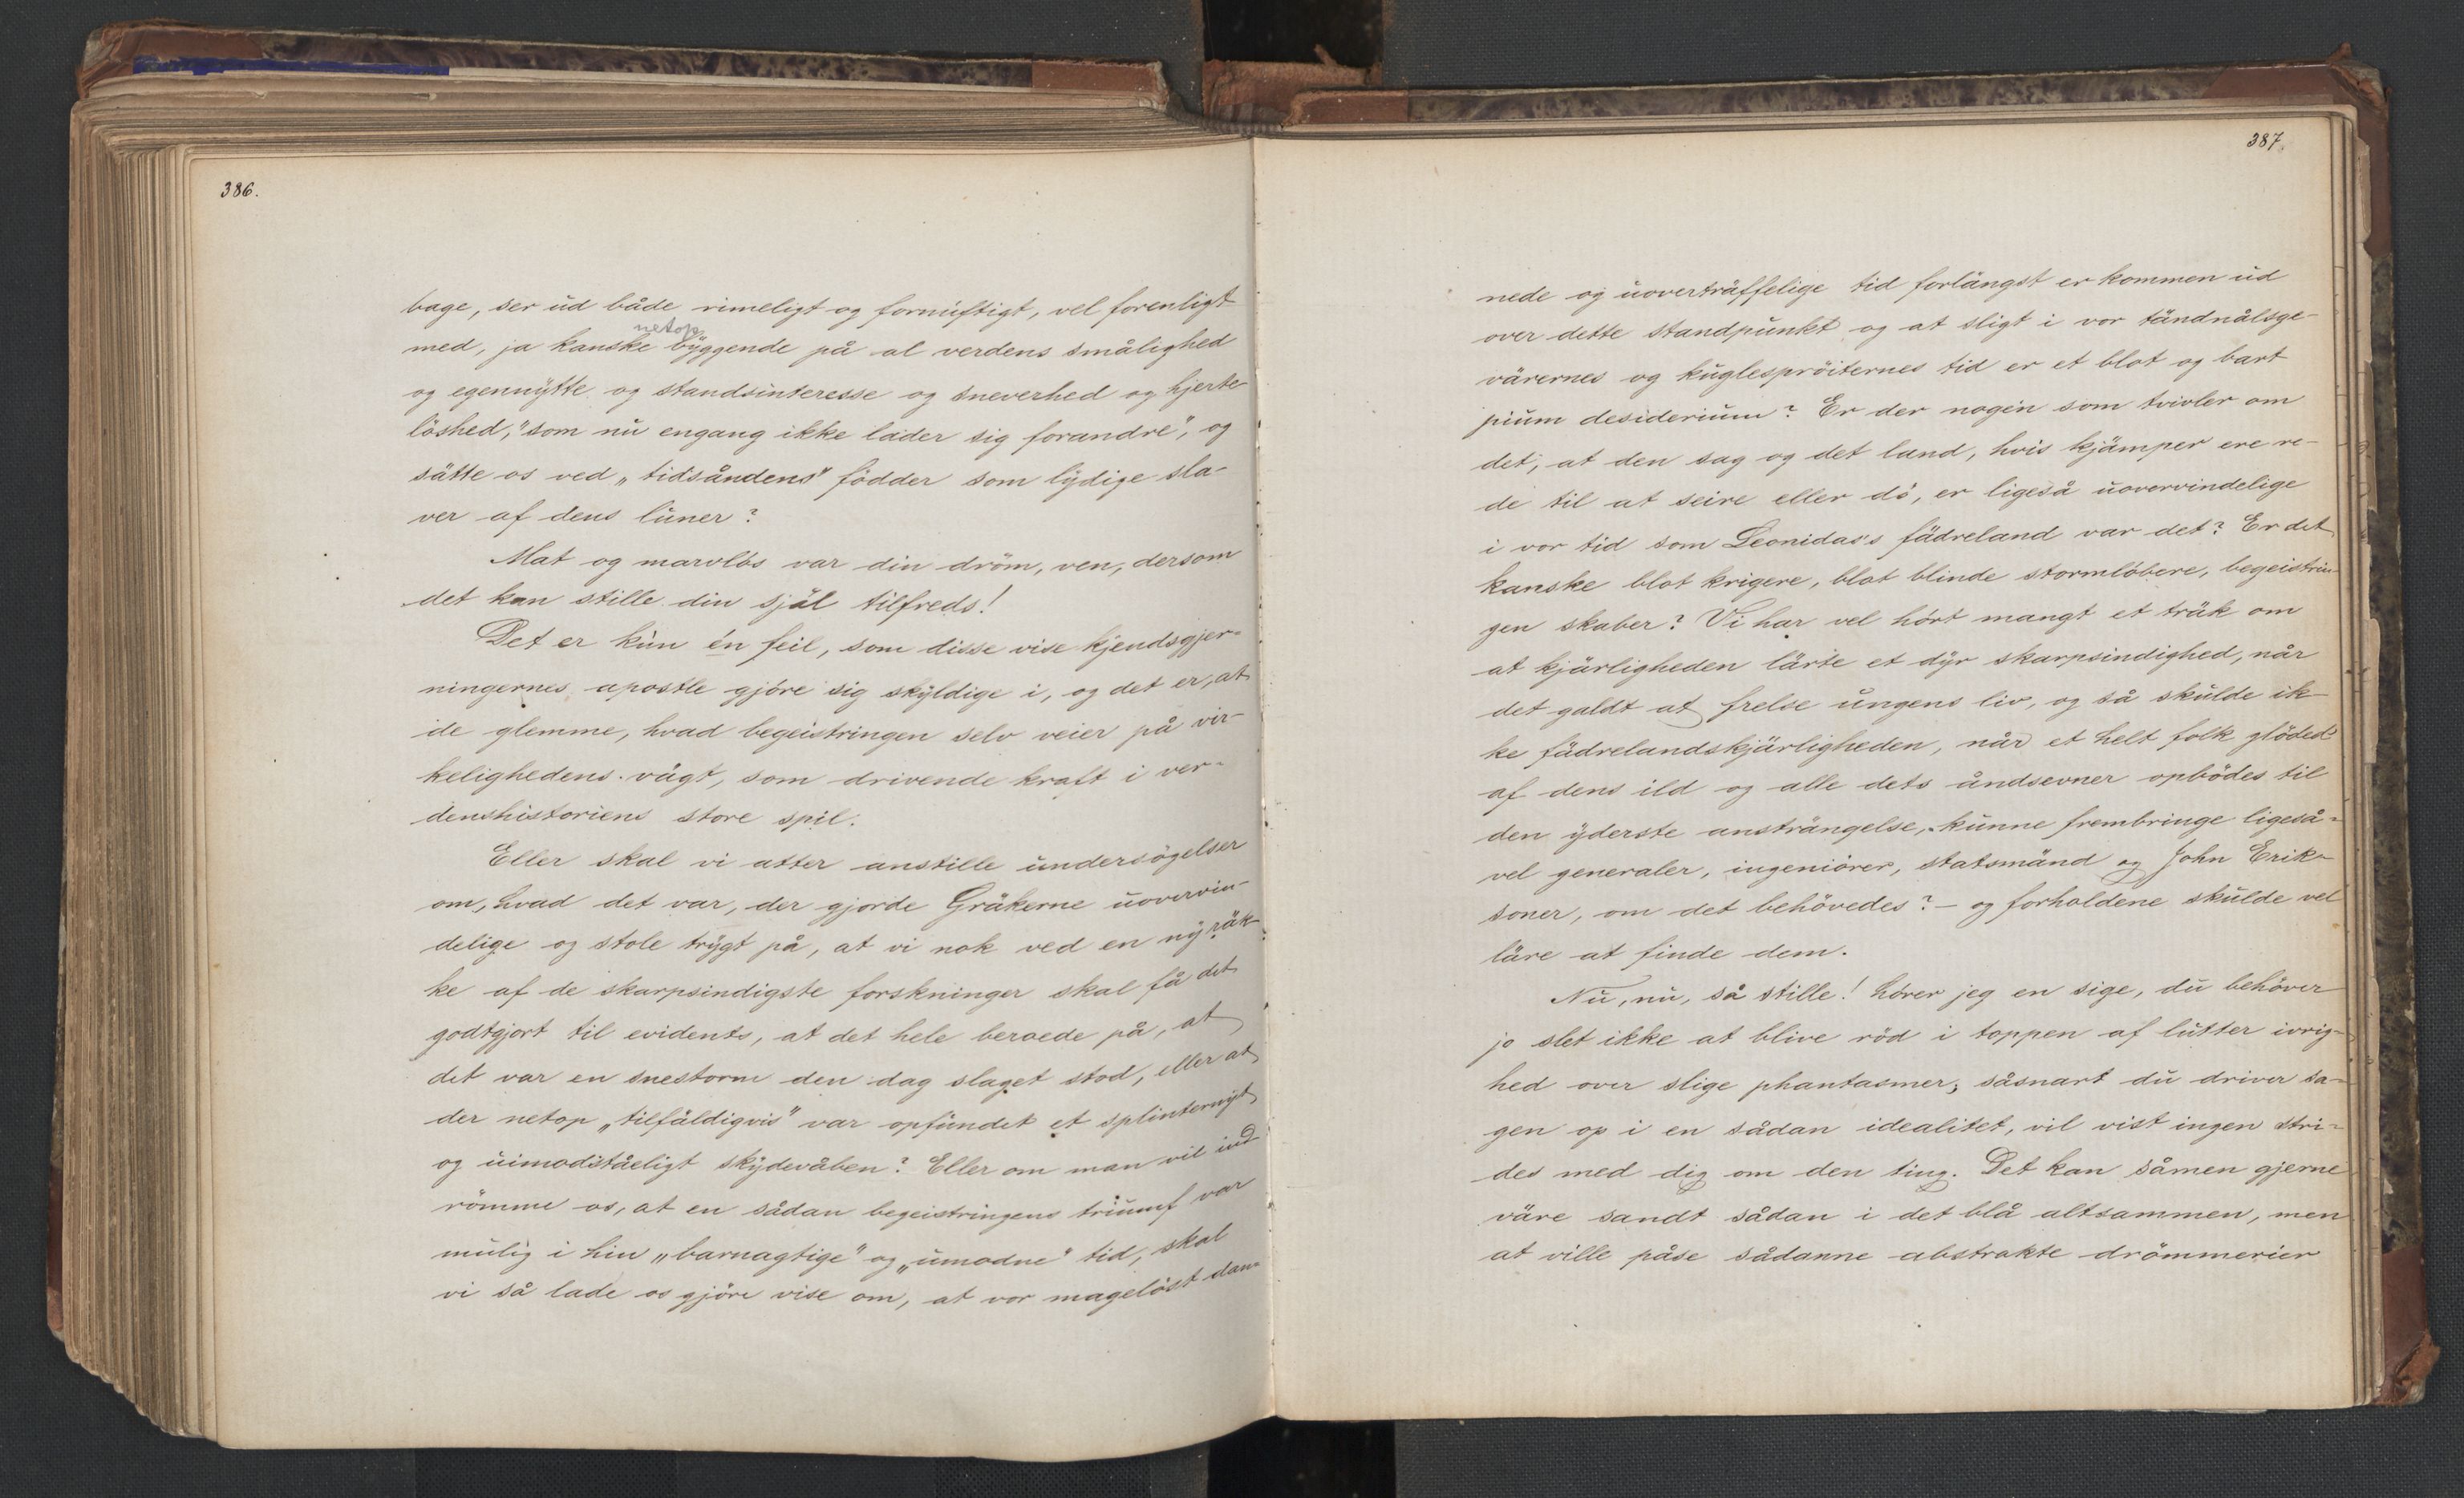 386.
bage, ser ud både rimeligt og fornuftigt, vel forenligt
netop
med, ja kanske byggende på al verdens smålighed
og egennytte og standsinteresse og sneverhed og hjerte-
löshed, "som nu engang ikke lader sig forandre", og
sätte os ved „tidsåndens" födder som lydige sla-
ver af dens luner?
Mat og marvlös var din dröm, ven, dersom
det kan stille din själ tilfreds!
Det er kun én feil, som disse vise kjendsgjer-
ningernes apostle gjöre sig skyldige i, og det er, at
de glemme, hvad begeistringen selv veier på vir-
kelighedens vägt, som drivende kraft i ver-
denshistoriens store spil.
Eller skal vi atter anstille undersögelser
om, hvad det var, der gjorde Gräkerne uovervin-
delige og stole trygt på, at vi nok ved en ny räk-
ke af de skarpsindigste forskninger skal få det
godtgjort til evidents, at det hele beroede på, at
det var en snestorm den dag slaget stod, eller at
der netop „tilfäldigvis" var opfundet et splinternyt
og uimodståeligt skydevåben? Eller om man vil ind-
römme os, at en sådan begeistringens triumf var
mulig i hin „barnagtige" og „umodne" tid, skal
vi så lade os gjöre vise om, at vor magelöst dan-
387.
nede og uoverträffelige tid forlängst er kommen ud
over dette standpunkt og at sligt i vor tändnålsge-
värernes og kuglespröiternes tid er et blot og bart
pium desiderium? Er der nogen som tvivler om
det, at den sag og det land, hvis kjämper ere re-
de til at seire eller dö, er ligeså uovervindelige
i vor tid som Leonidas's fädreland var det? Er det
kanske blot krigere, blot blinde stormlöbere, begeistrin-
gen skaber? Vi har vel hört mangt et träk om
at kjärligheden lärte et dyr skarpsindighed, når
det galdt at frelse ungens liv, og så skulde ik-
ke fädrelandskjärligheden, når et helt folk glöded
af dens ild og alle dets åndsevner opbödes til
den yderste ansträngelse, kunne frembringe ligeså-
vel generaler, ingeniörer, statsmänd og John Erik-
soner, om det behövedes? - og forholdene skulde vel
läre at finde dem.
Nu, nu, så stille! hörer jeg en sige, du behöver
jo slet ikke at blive röd i toppen af lutter ivrig-
hed over slige phantasmer; såsnart du driver sa-
gen op i en sådan idealitet, vil vist ingen stri-
des med dig om den ting. Det kan såmen gjerne
väre sandt sådan i det blå altsammen, men
at ville påse sådanne abstrakte drömmerier